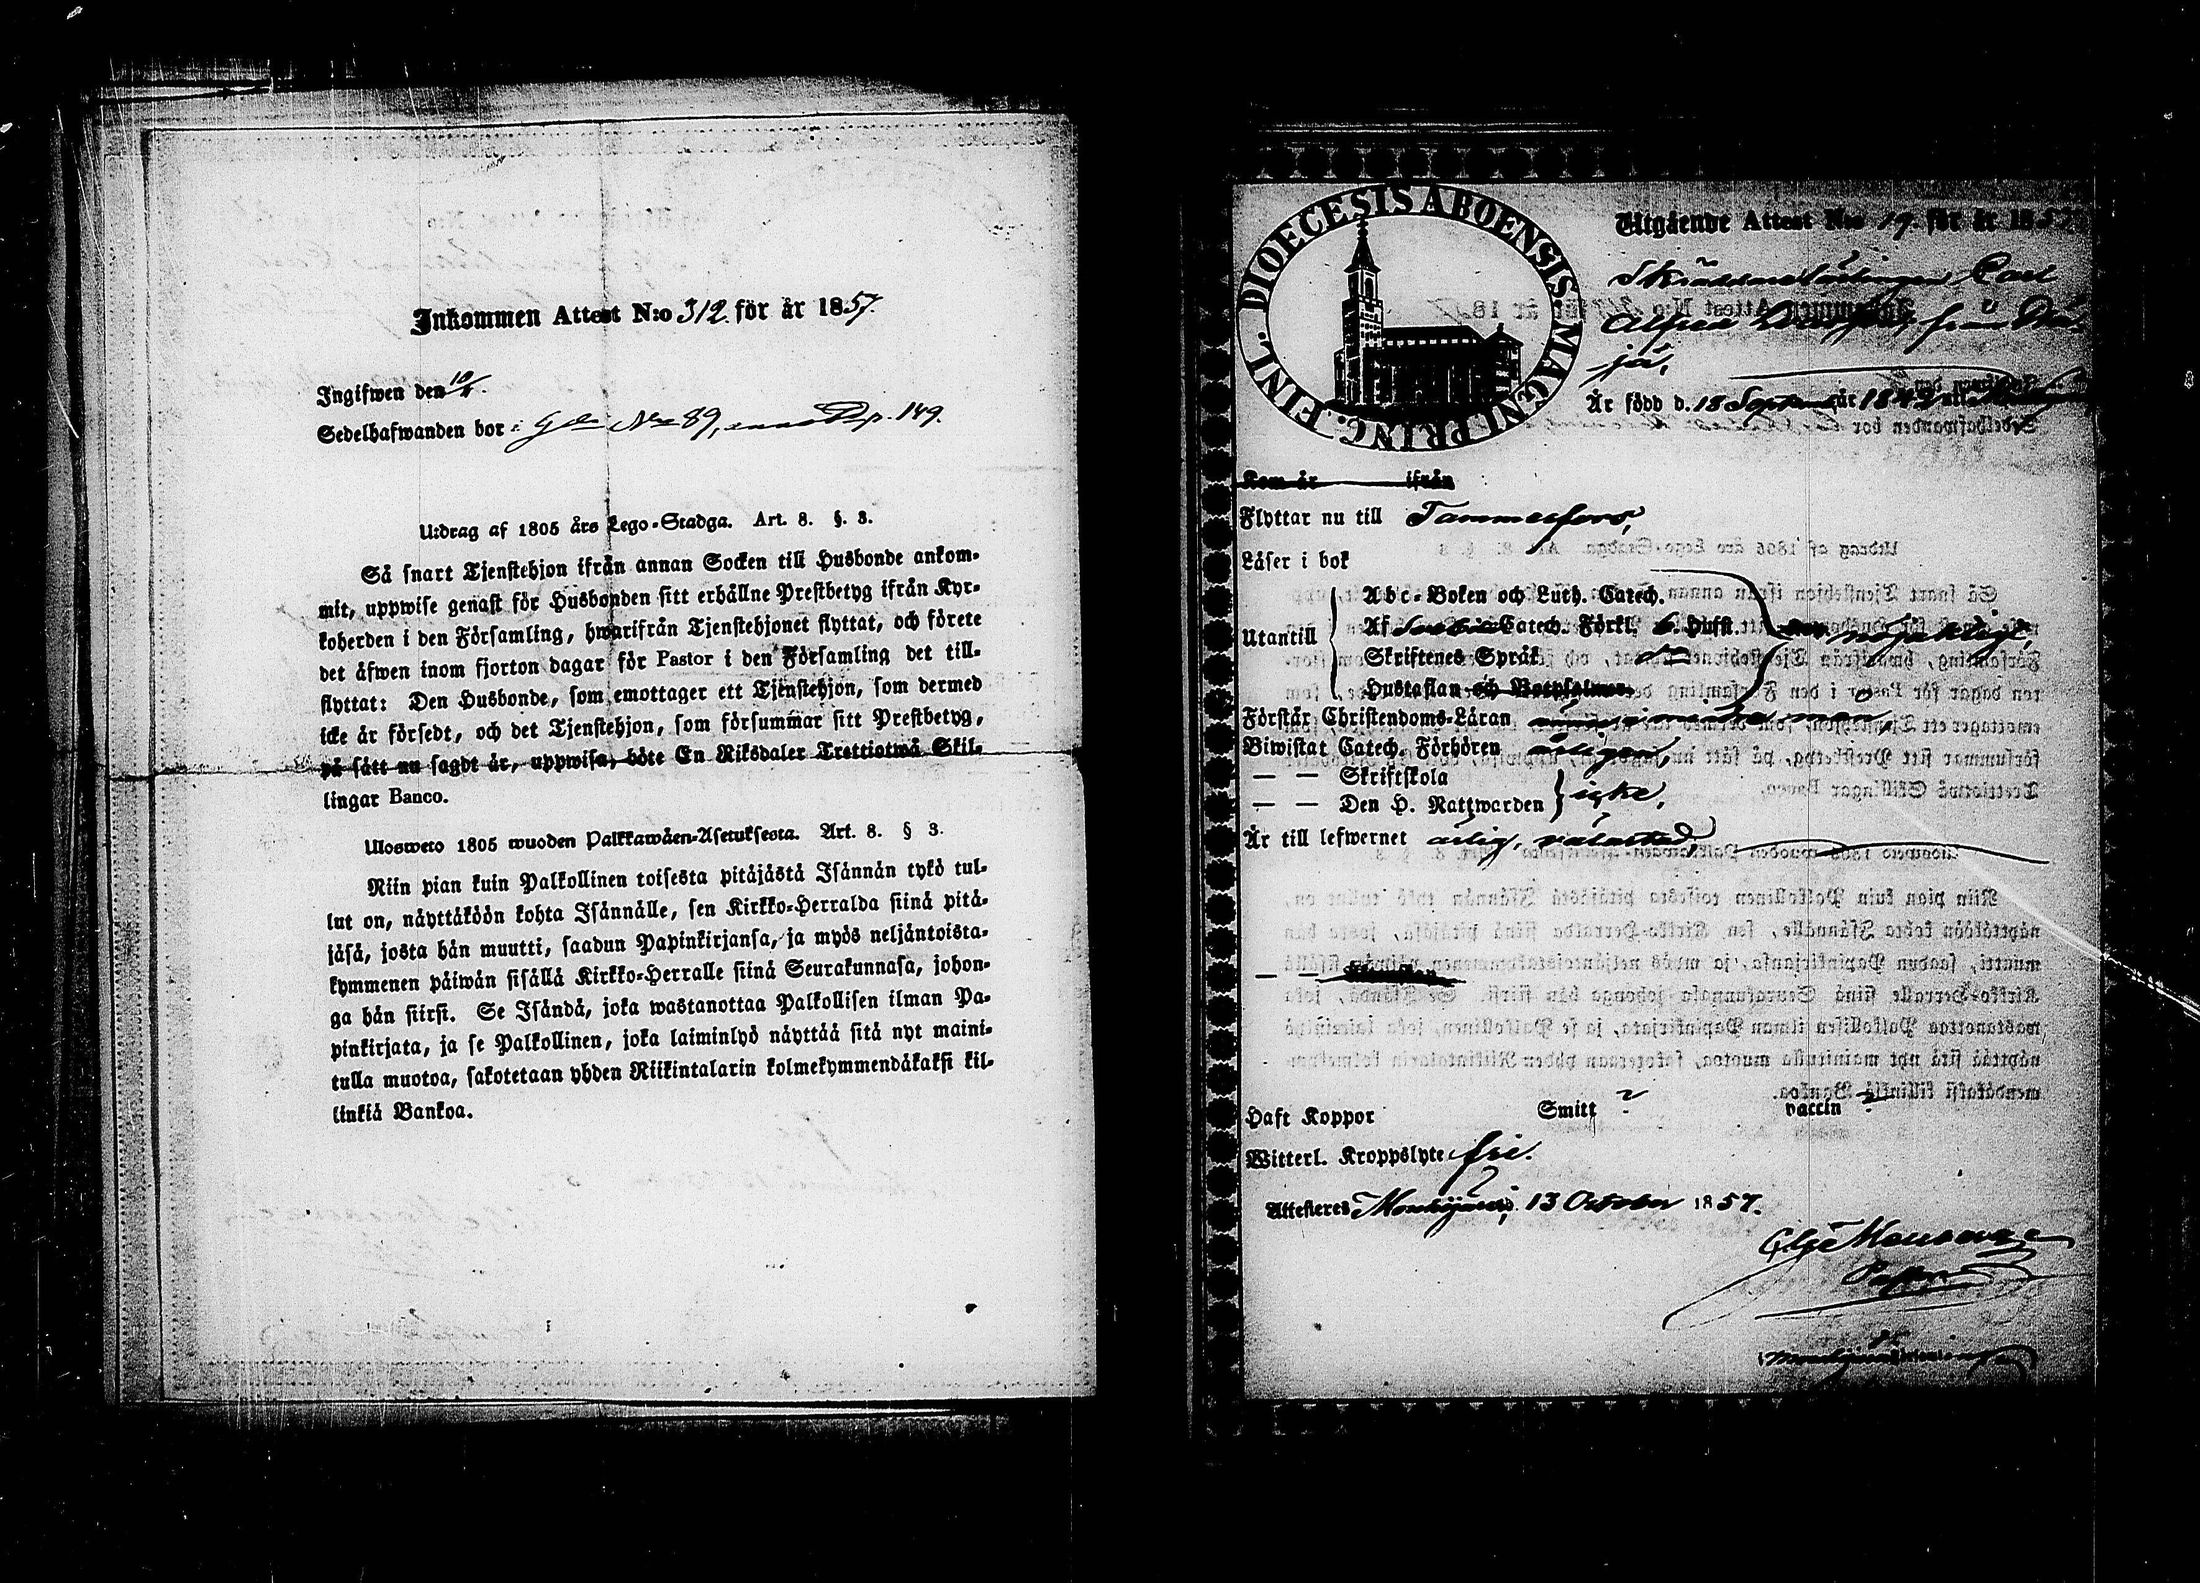 Inkommen Attest N:o 312. för år 1857.
Ingifwen den 10/
Sedelhafwanden bor i Gården No 89, p. 149.
Utdrag af 1805 års Lego-Stadga. Art. 8. §. 3.
Så snart Tjenstehjon ifrån annan Socken till Husbonde ankom-
mit, uppwise genast för Husbonden sitt erhållne Prestbetyg ifrån Kyr-
koherden i den Församling, hwarifrån Tjenstehjonet flyttat, och förete
det äfwen inom fjorton dagar för Pastor i den Församling det till-
flyttat: Den Husbonde, som emottager ett Tjenstehjon, som dermed
icke är försedt, och det Tjenstehjon, som försummar sitt Prestbetyg,
på sätt nu sagdt är, uppwisa, böte En Riksdaler Trettiotwå Skil-
lingar Banco.
Ulosweto 1805 wuoden Palkkawäen-Asetuksesta. Art. 8. § 3.
Niin pian kuin Palkollinen toisesta pitäjästä Isännän tykö tul-
lut on, näyttäköön kohta Isännälle, sen Kirkko-Herralda siinä pitä-
jäsä, josta hän muutti, saadun Papinkirjansa, ja myös neljäntoista-
kymmenen päiwän sisällä Kirkko-Herralle siinä Seurakunnasa, johon-
ga hän siirsi. Se Isändä, joka wastanottaa Palkollisen ilman Pa-
pinkirjata, ja se Palkollinen, joka laiminlyö näyttää sitä nyt maini-
tulla muotoa, sakotetaan yhden Riikintalarin kolmekymmendäkaksi kil-
linkiä Bankoa.
FINL. DIOECESIS ABOENSIS. MAGNI PRINC.
Utgående Attest N:o 19. för år 1857
Skräddarelärlingen Carl
Alfred från
jä,
Är född d. 18 September år 1842
Kom år ifrån
Flyttar nu till Tammerfors,
Läser i bok
Utantill
Abc-Boken och Luth. Catech.
Af Catech. Förkl. 6. Hufst. nöjaktigt,
Skriftenes Språk
Hustaflan och Botpsalmer.
Förstår Christendoms-Läran i mindre mån,
Biwistat Catech. Förhören årligen,
— — Skriftskola
— — Den H. Nattwarden } icke,
Är till lefwernet ärlig,
— —
Haft Koppor Smitt ? vaccin ?
Witterl. Kroppslyte fri.
Attesteres Mouhijärvi, d. 13 October 1857.
Pastor